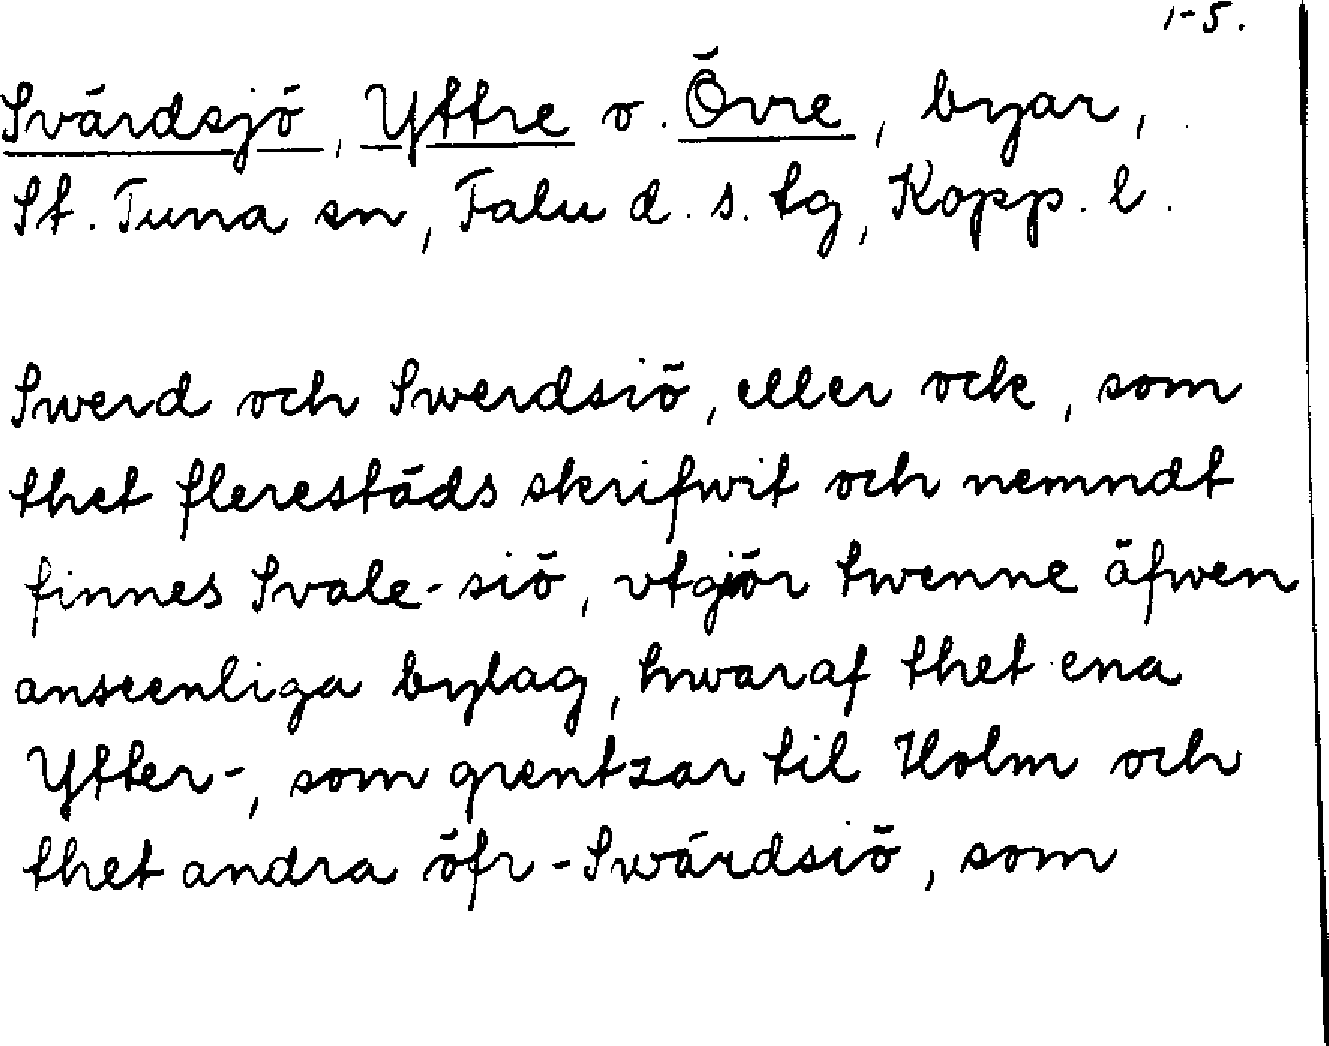 1-5.
Svärdsjö, Yttre o. Övre, byar,
St. Tuna sn, Falu d. s. tg, Kopp. l.
Swerd och Swerdsiö, eller ock, som
thet flerestäds skrifwit och nemndt
finnes Svale-siö, vtgiör twenne äfwen
anseenliga bylag, hwaraf thet ena
Ytter-, som grentzar til Holm och
thet andra öfr-Swärdsiö, som